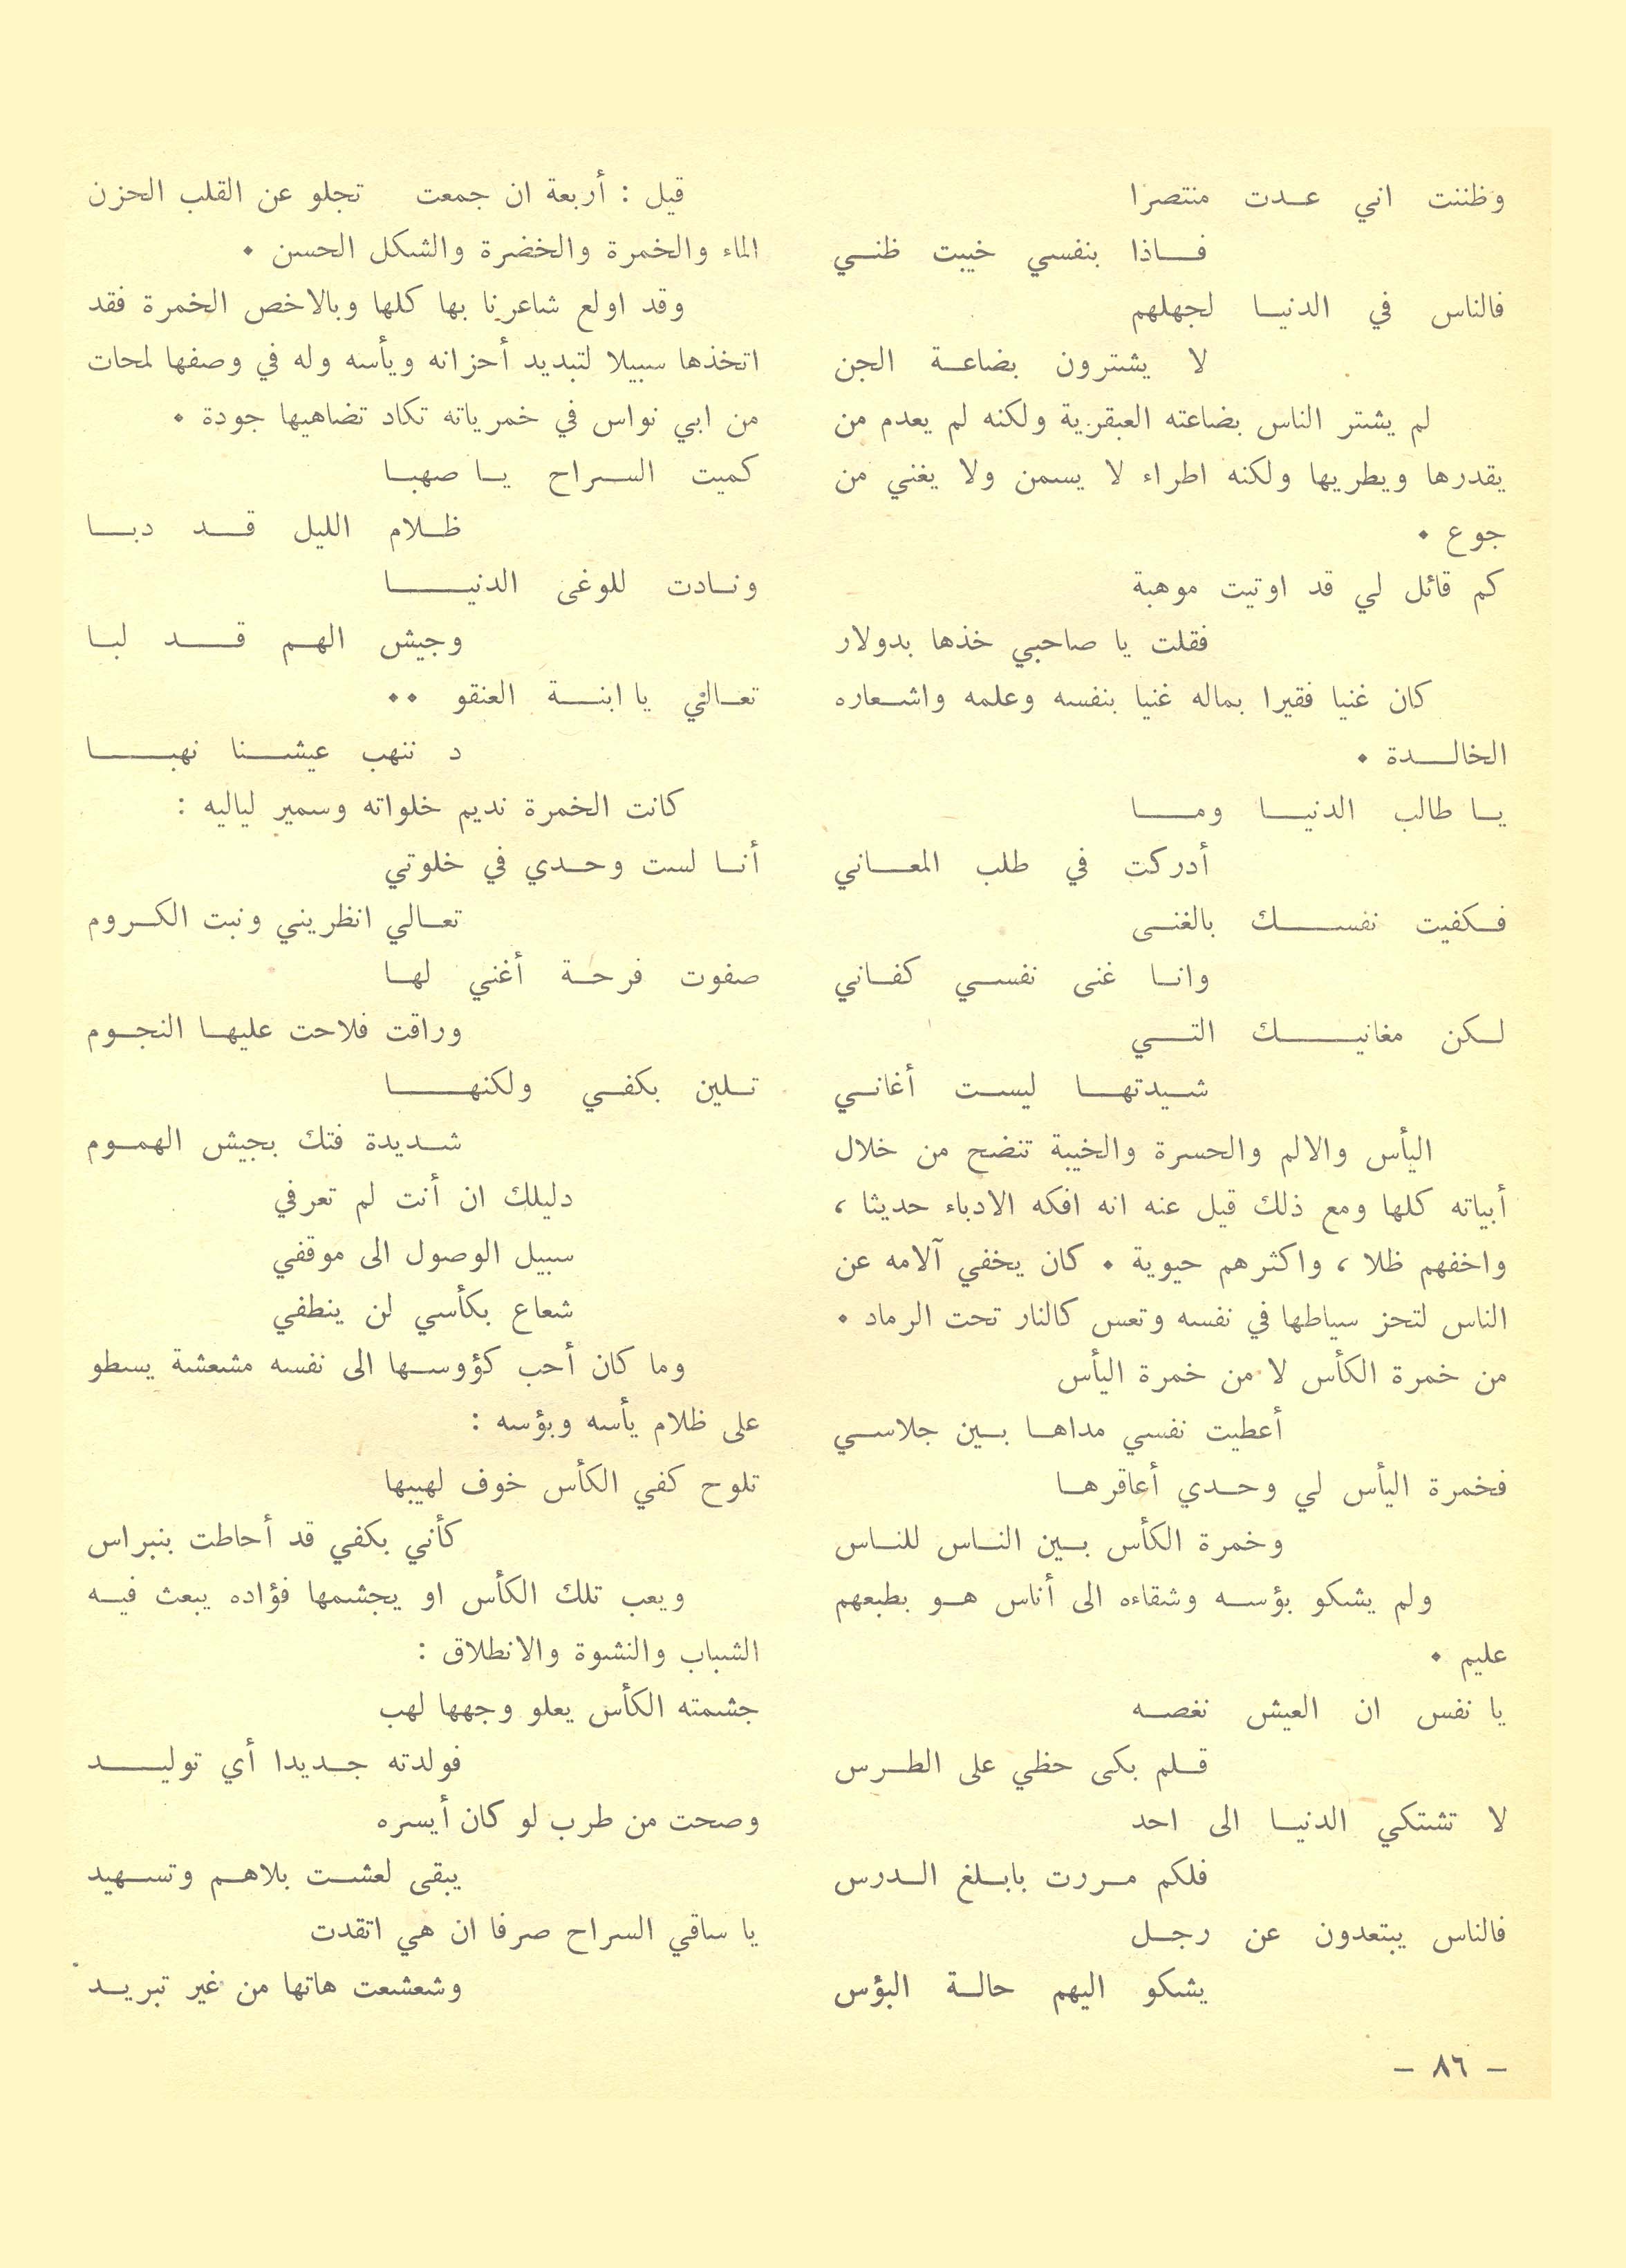 وظننت اني عدت منتصرا
فاذا بنفسي خيبت ظني
فالناس في الدنيا لجهلهم
لا يشترون بضاعة الجن
لم يشتر الناس بضاعته العبقرية ولكنه لم يعدم من
يقدرها ويطريها ولكنه اطراء لا يسمن ولا يغني من
جوع .
كم قائل لي قد اوتيت موهبة
فقلت يا صاحبي خذها بدولار
كان غنيا فقيرا بماله غنيا بنفسه وعلمه واشعاره
الخالدة .
يا طالب الدنيا وما
أدركت في طلب المعاني
فكفيت نفسك بالغنى
وانا غنى نفسي كفاني
لكن مغانيك التي
شيدتها ليست أغاني
اليأس والالم والحسرة والخيبة تنضح من خلال
أبياته كلها ومع ذلك قيل عنه انه افكه الادباء حديثا ،
واخفهم ظلا ، واكثرهم حيوية . كان يخفي آلامه عن
الناس لتحز سياطها في نفسه وتعس كالنار تحت الرماد .
من خمرة الكأس لا من خمرة اليأس
أعطيت نفسي مداها بين جلاسي
فخمرة اليأس لي وحدي أعاقرها
وخمرة الكأس بين الناس للناس
ولم يشكو بؤسه وشقاءه الى أناس هو بطبعهم
عليم .
يا نفس ان العيش نغصه
قلم بكى حظي على الطرس
لا تشتكي الدنيا الى احد
فلكم مررت بابلغ الدرس
فالناس يبتعدون عن رجل
يشكو اليهم حالة البؤس
قيل : أربعة ان جمعت تجلو عن القلب الحزن
الماء والخمرة والخضرة والشكل الحسن .
وقد اولع شاعرنا بها كلها وبالاخص الخمرة فقد
اتخذها سبيلا لتبديد أحزانه ويأسه وله في وصفها لمحات
من ابي نواس في خمرياته تكاد تضاهيها جودة .
كميت السراح يا صهبا
ظلام الليل قد دبا
ونادت للوغى الدنيا
وجيش الهم قد لبا
تعالي يا ابنة العنقو ..
د ننهب عيشنا نهبا
كانت الخمرة نديم خلواته وسمير لياليه :
أنا لست وحدي في خلوتي
تعالي انظريني ونبت الكروم
صفوت فرحة أغني لها
وراقت فلاحت عليها النجوم
تلين بكفي ولكنها
شديدة فتك بجيش الهموم
دليلك ان أنت لم تعرفي
سبيل الوصول الى موقفي
شعاع بكأسي لن ينطفي
وما كان أحب كؤوسها الى نفسه مشعشة يسطو
على ظلام يأسه وبؤسه :
تلوح كفي الكأس خوف لهيبها
كأني بكفي قد أحاطت بنبراس
ويعب تلك الكأس او يجشمها فؤاده يبعث فيه
الشباب والنشوة والانطلاق :
جشمته الكأس يعلو وجهها لهب
فولدته جديدا أي توليد
وصحت من طرب لو كان أيسره
يبقى لعشت بلاهم وتسهيد
يا ساقي السراح صرفا ان هي اتقدت
وشعشعت هاتها من غير تبريد
– ٨٦ –